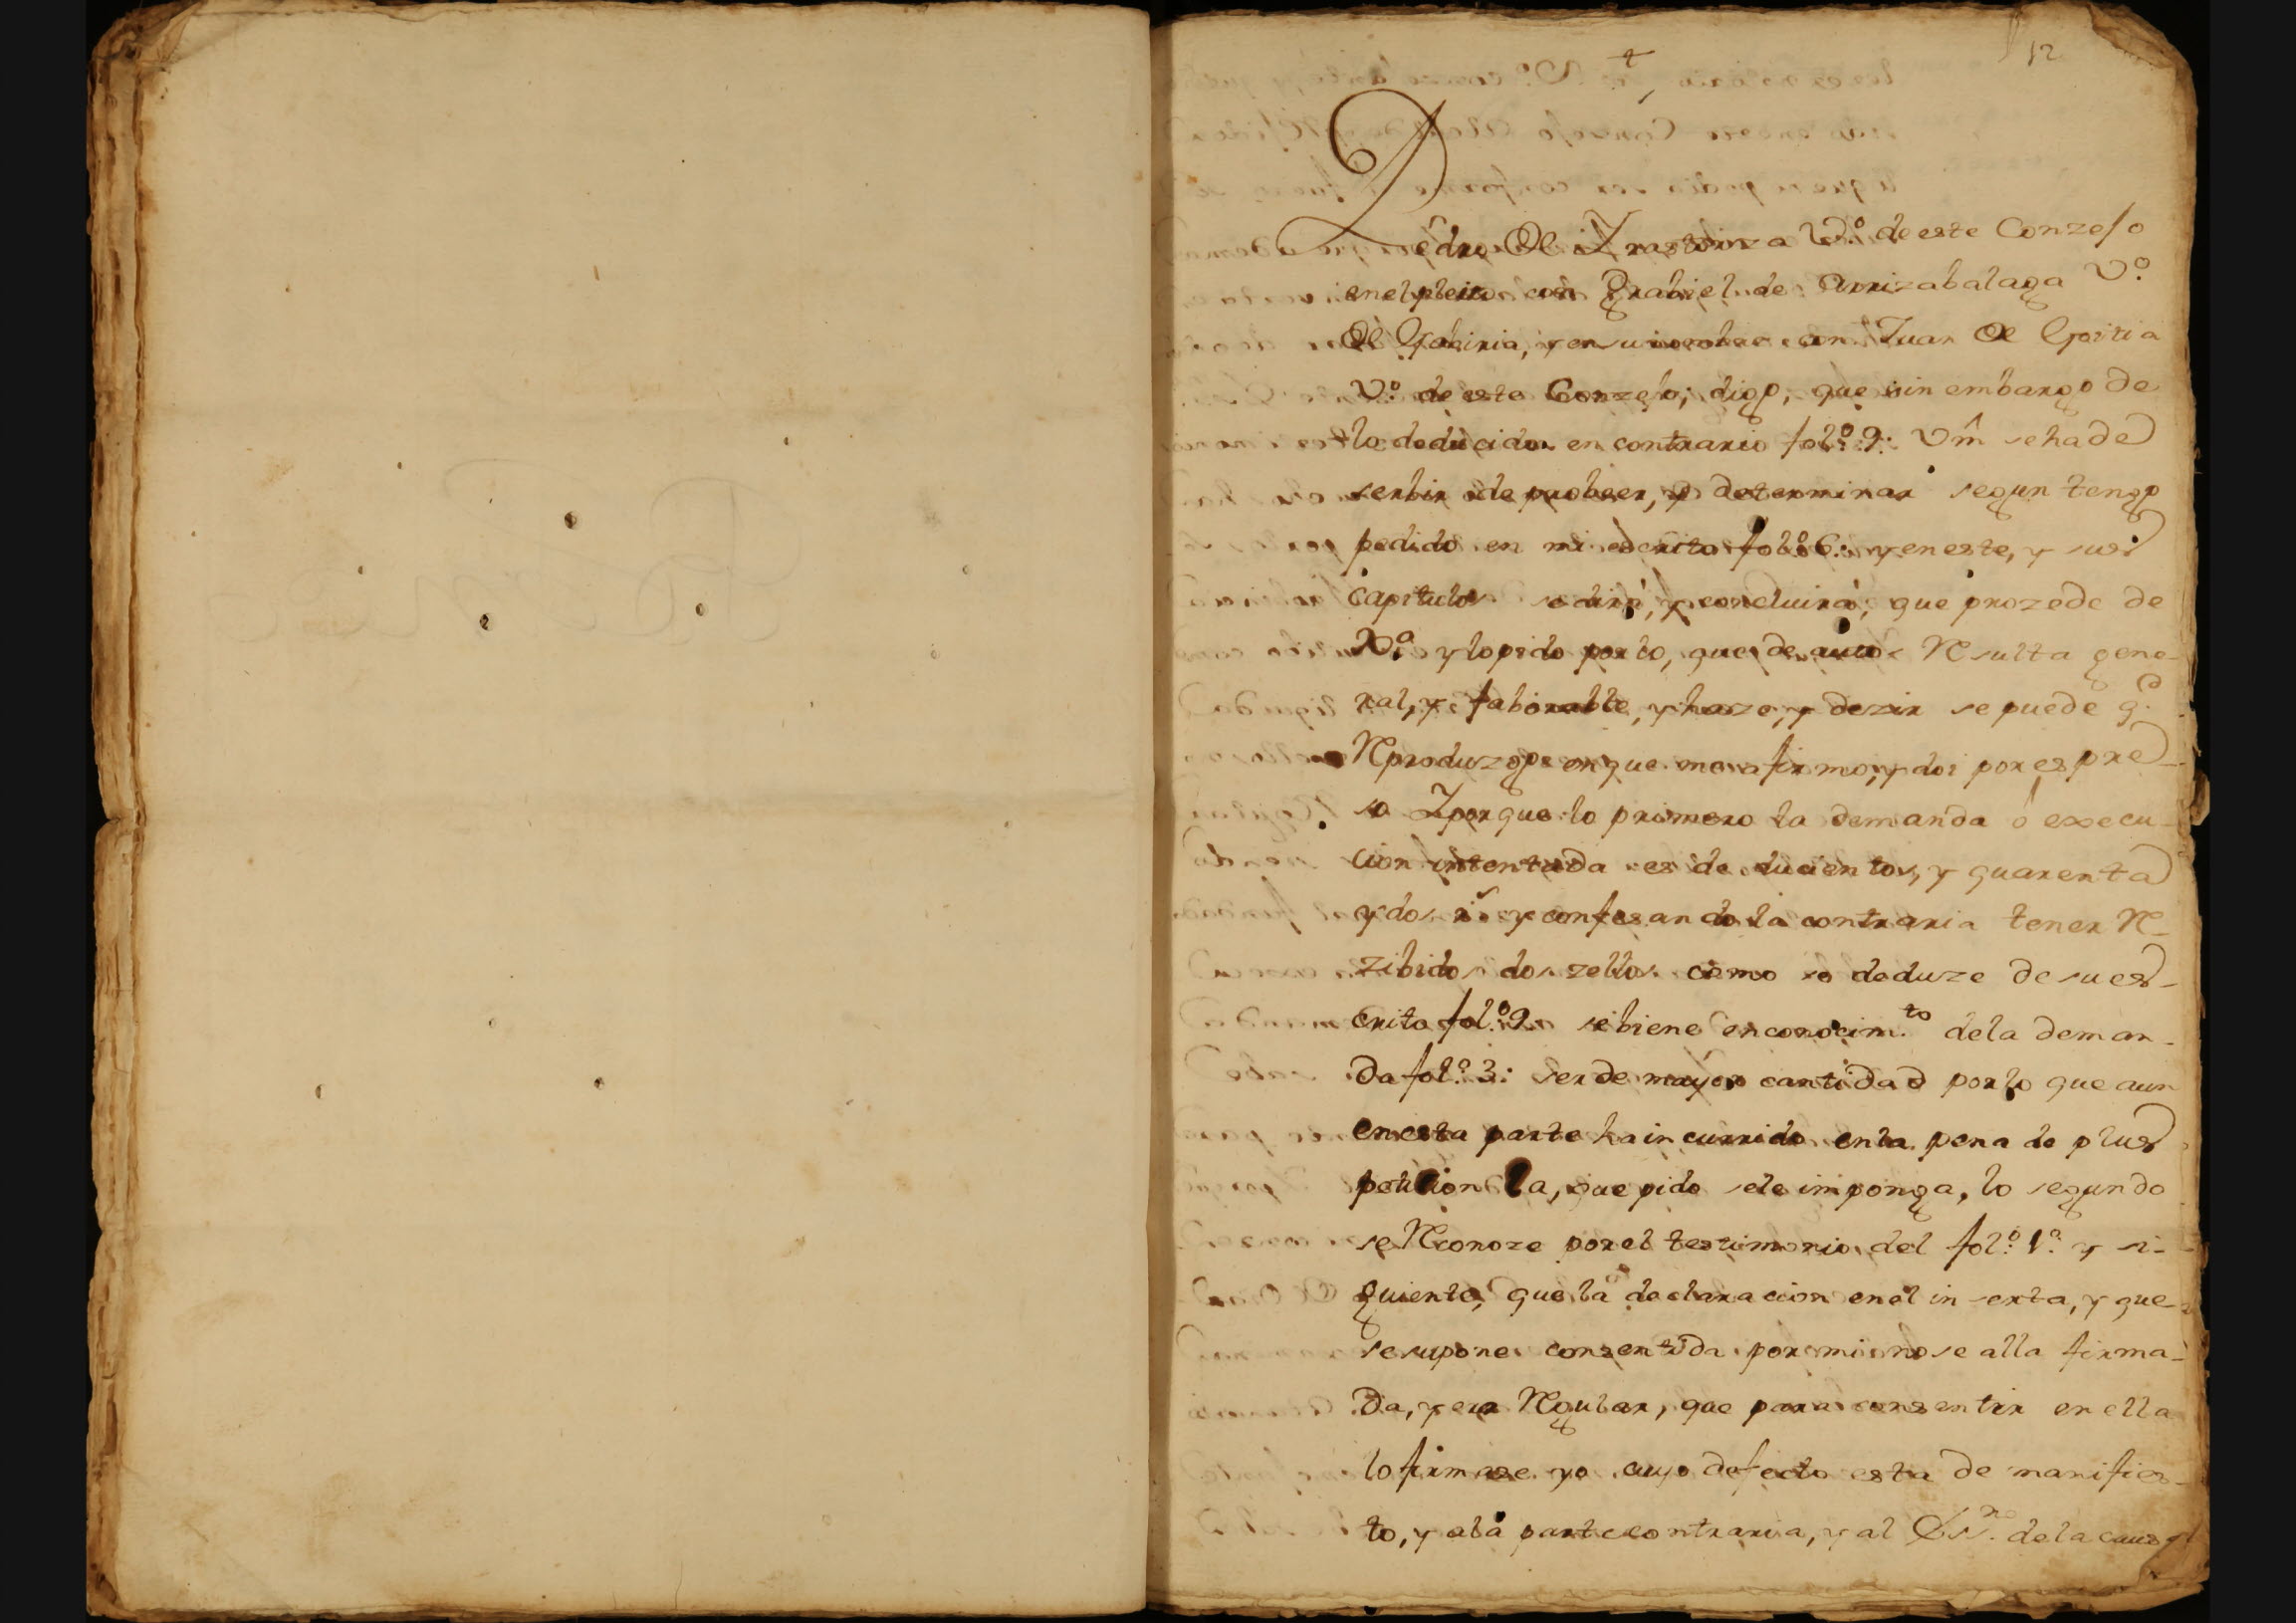 12
Pedro de Irastorza v.º de este Conzejo
en el pleito con Grabiel de Arrizabalaga V.º
de Gabiria, y en su nombre con Juan de Goitia
V.º de este Conzejo; digo, que sin embargo de
lo deducido en contrario fol.º 9. Vm̂ se ha de
serbir de probeer, y determinar segun tengo
pedido en mi escrito fol.º 6: y en este, y sus
capitulos se dirá, y concluirá, que prozede de
X.ª y lo pido por lo, que de autos Resulta gene-
ral, y faborable, y haze, y dezir se puede q.e
Reproduzgo en que me afirmo, y doi por espre-
so Y porque lo primero la demanda ó execu-
cion intentada es de ducientos, y quarenta
y dos r.s y confesando la contraria tener Re-
zibidos dos zellos como se deduze de su es-
crito fol.º 9. se biene en conocim.to de la deman-
da fol.º 3: ser de mayor cantidad por lo que aun
en esta parte ha incurrido en la pena de plus
peticion la, que pido se le imponga, lo segundo
se Reconoze por el testimonio del fol.º 1.º y si-
guiente, que la declaracion en el inserta, y que
se supone consentida por mi no se alla firma-
da, y era Regular, que para consentir en ella
lo firmase yo cuyo defecto esta de manifies-
to, y a la parte contraria, y al Ess.no de la causa